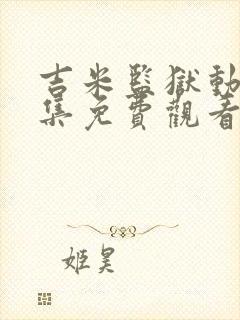 吉米監獄動
集免費觀看
姬昊